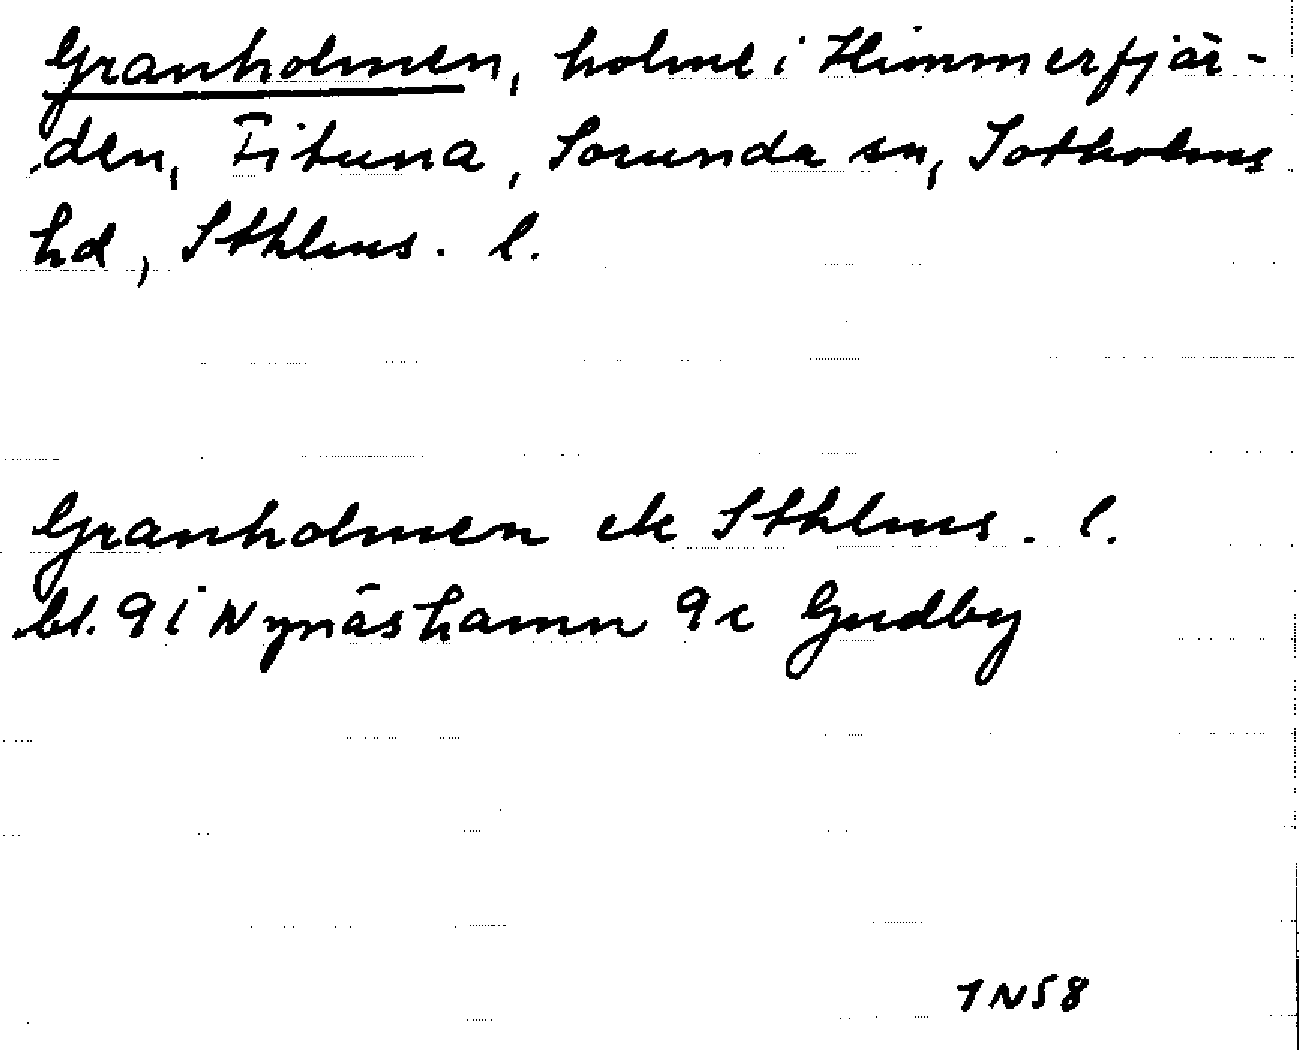 Granholmen, holme i Himmerfjär-
den, Fituna, Sorunda sn, Sotholms
hd, Sthlms. l.
Granholmen ek Sthlms. l.
bl. 9 i Nynäshamn 9 c Gudby
1N58